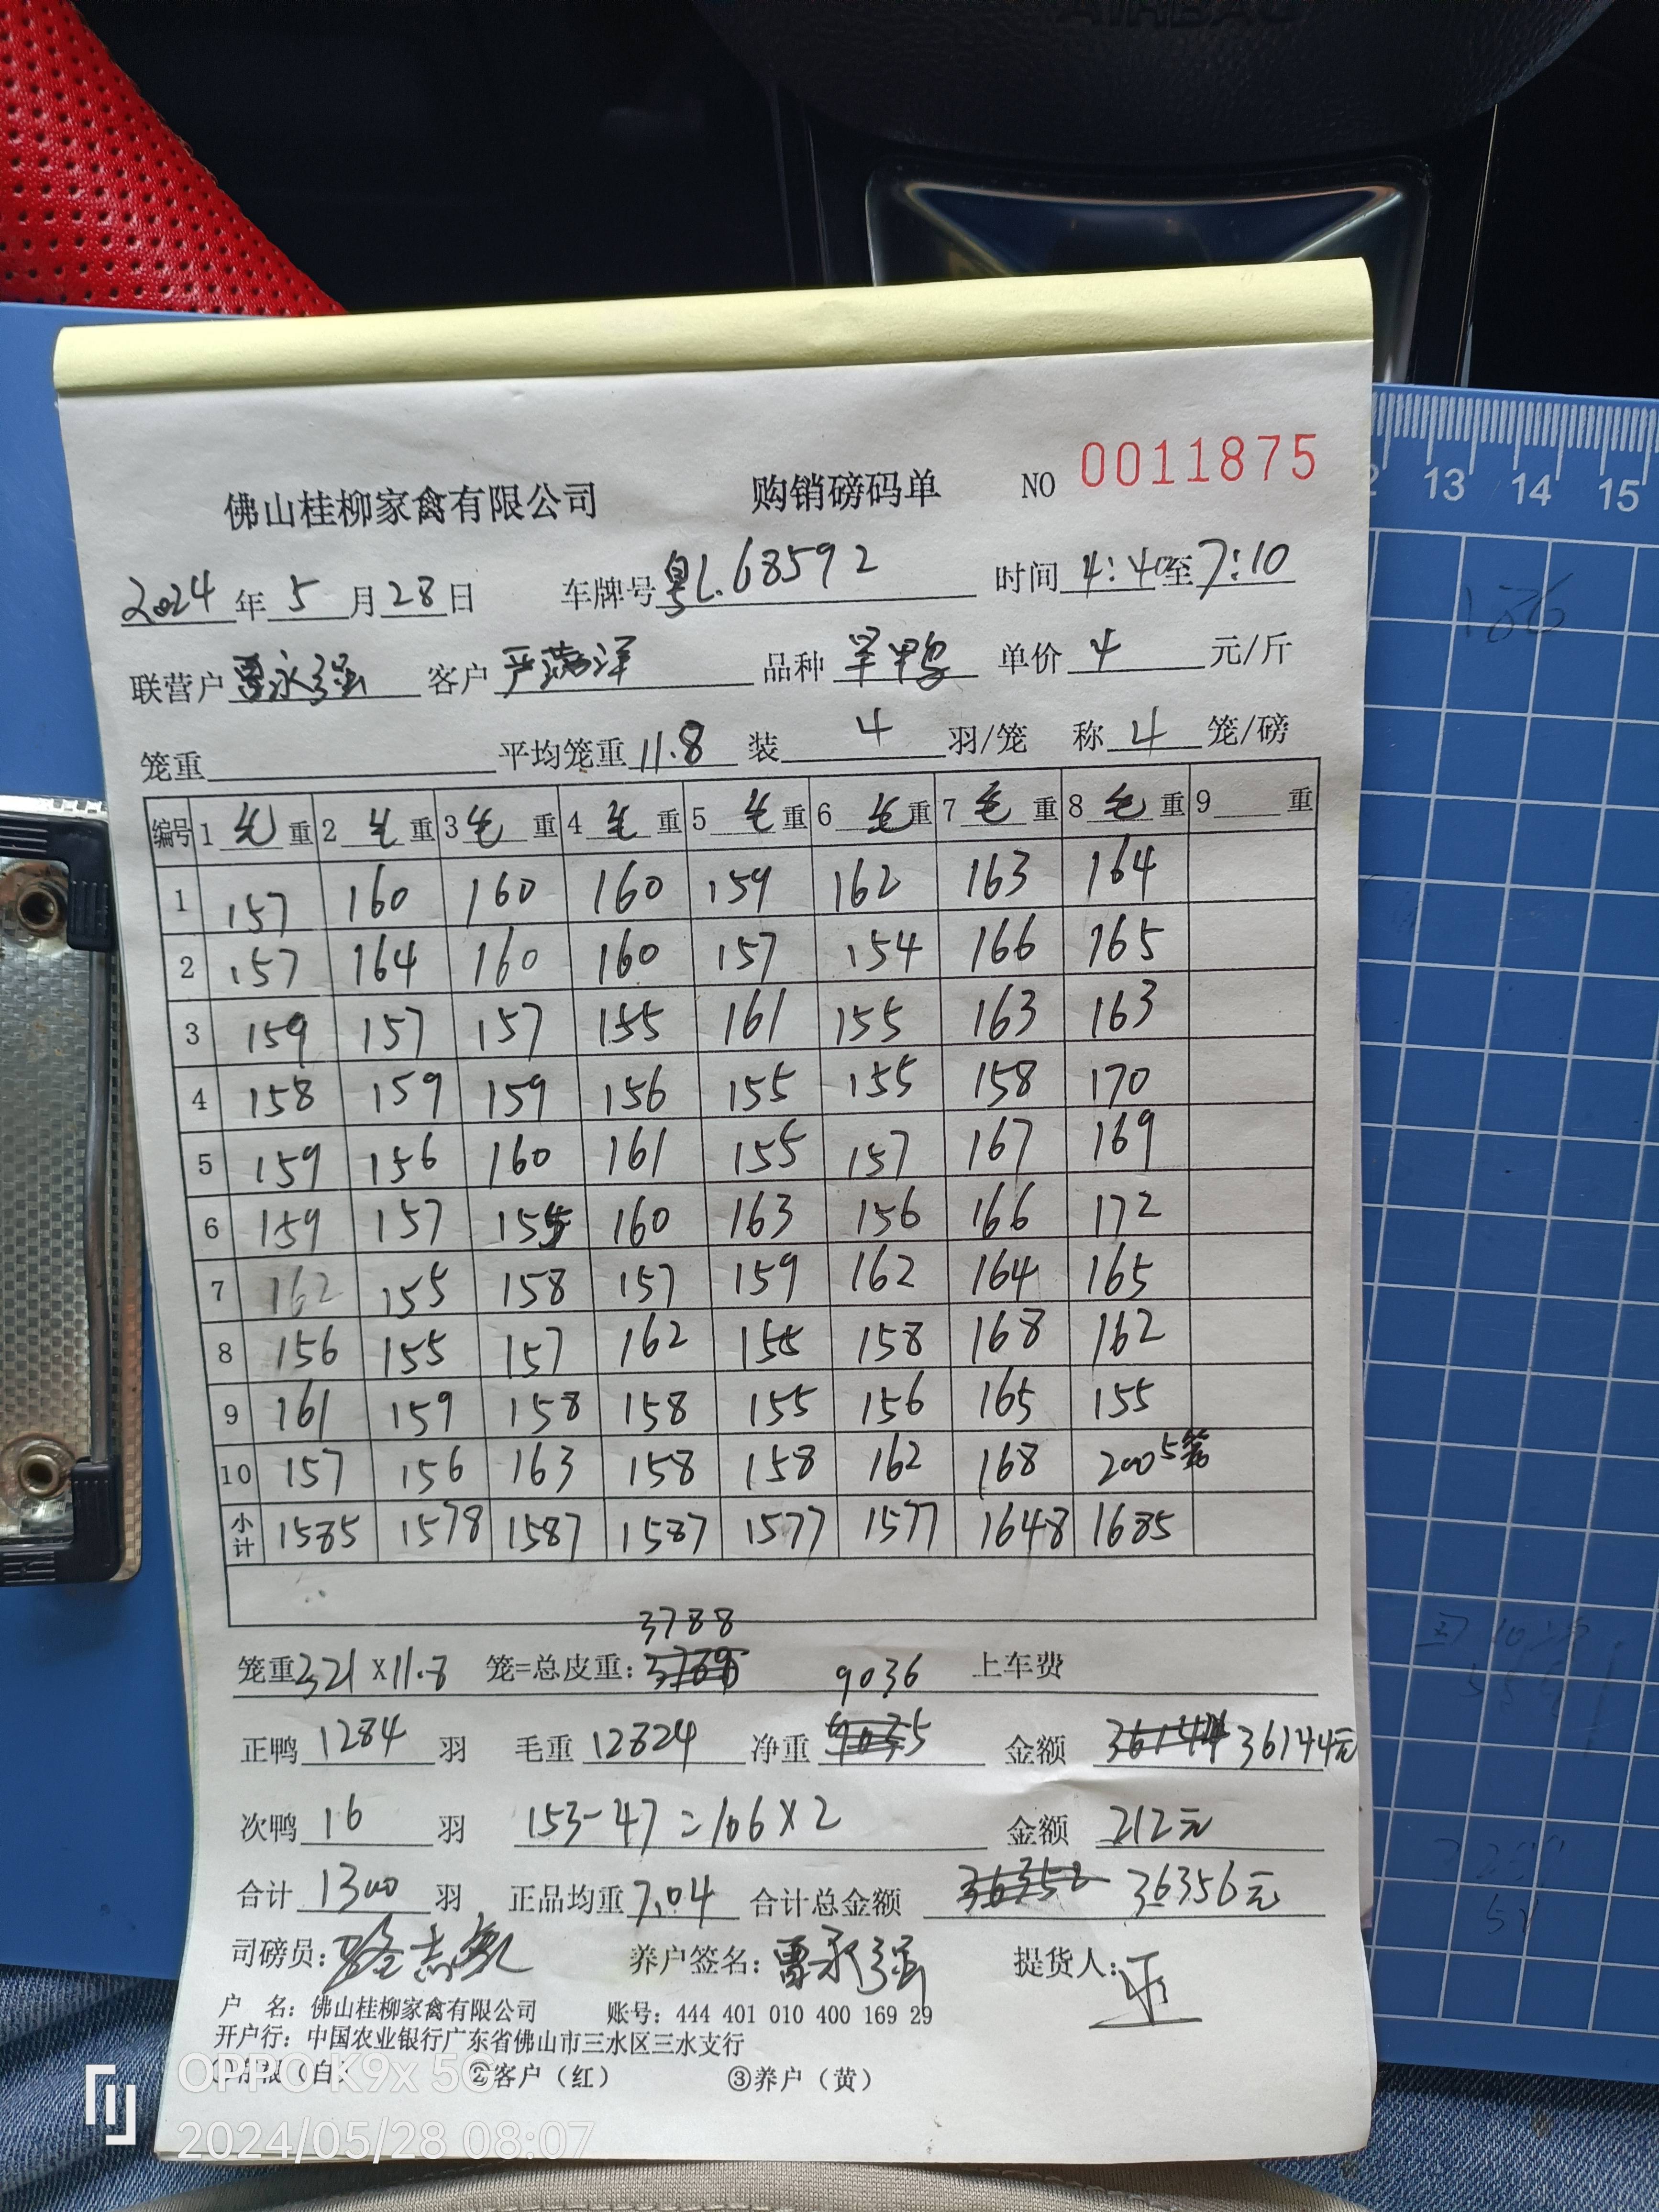 AIRBAG
佛山桂柳家禽有限公司 购销磅码单 NO 0011875
2024年5月28日 车牌号粤L.68592 时间4:40至7:10
联营户 覃永强 客户 严 洋 品种 旱鸭 单价 4 元/斤
笼重 平均笼重11.8 装 4 羽/笼 称 4 笼/磅
编号 1 毛 重 2 毛 重 3 毛 重 4 毛 重 5 毛 重 6 毛 重 7 毛 重 8 毛 重 9 重
1 157 160 160 160 159 162 163 164
2 157 164 160 160 157 154 166 165
3 159 157 157 155 161 155 163 163
4 158 159 159 156 155 155 158 170
5 159 156 160 161 155 157 167 169
6 159 157 155 160 163 156 166 172
7 162 155 158 157 159 162 164 165
8 156 155 157 162 155 158 168 162
9 161 159 158 158 155 156 165 155
10 157 156 163 158 158 162 168 200 5笼
小计 1585 1578 1587 1587 1577 1577 1648 1685
3788
笼重321×11.8 笼=总皮重: 上车费
9036
正鸭 1284 羽 毛重 12824 净重 金额 36144元
次鸭 16 羽 153-47=106×2 金额 212元
合计 1300 羽 正品均重 7.04 合计总金额 36356元
司磅员: 养户签名:覃永强 提货人:
户 名: 佛山桂柳家禽有限公司 账号: 444 401 010 400 169 29
开户行: 中国农业银行广东省佛山市三水区三水支行
(白) ②客户(红) ③养户(黄)
OPPO K9x 5G
2024/05/28 08:07
12 13 14 15
156